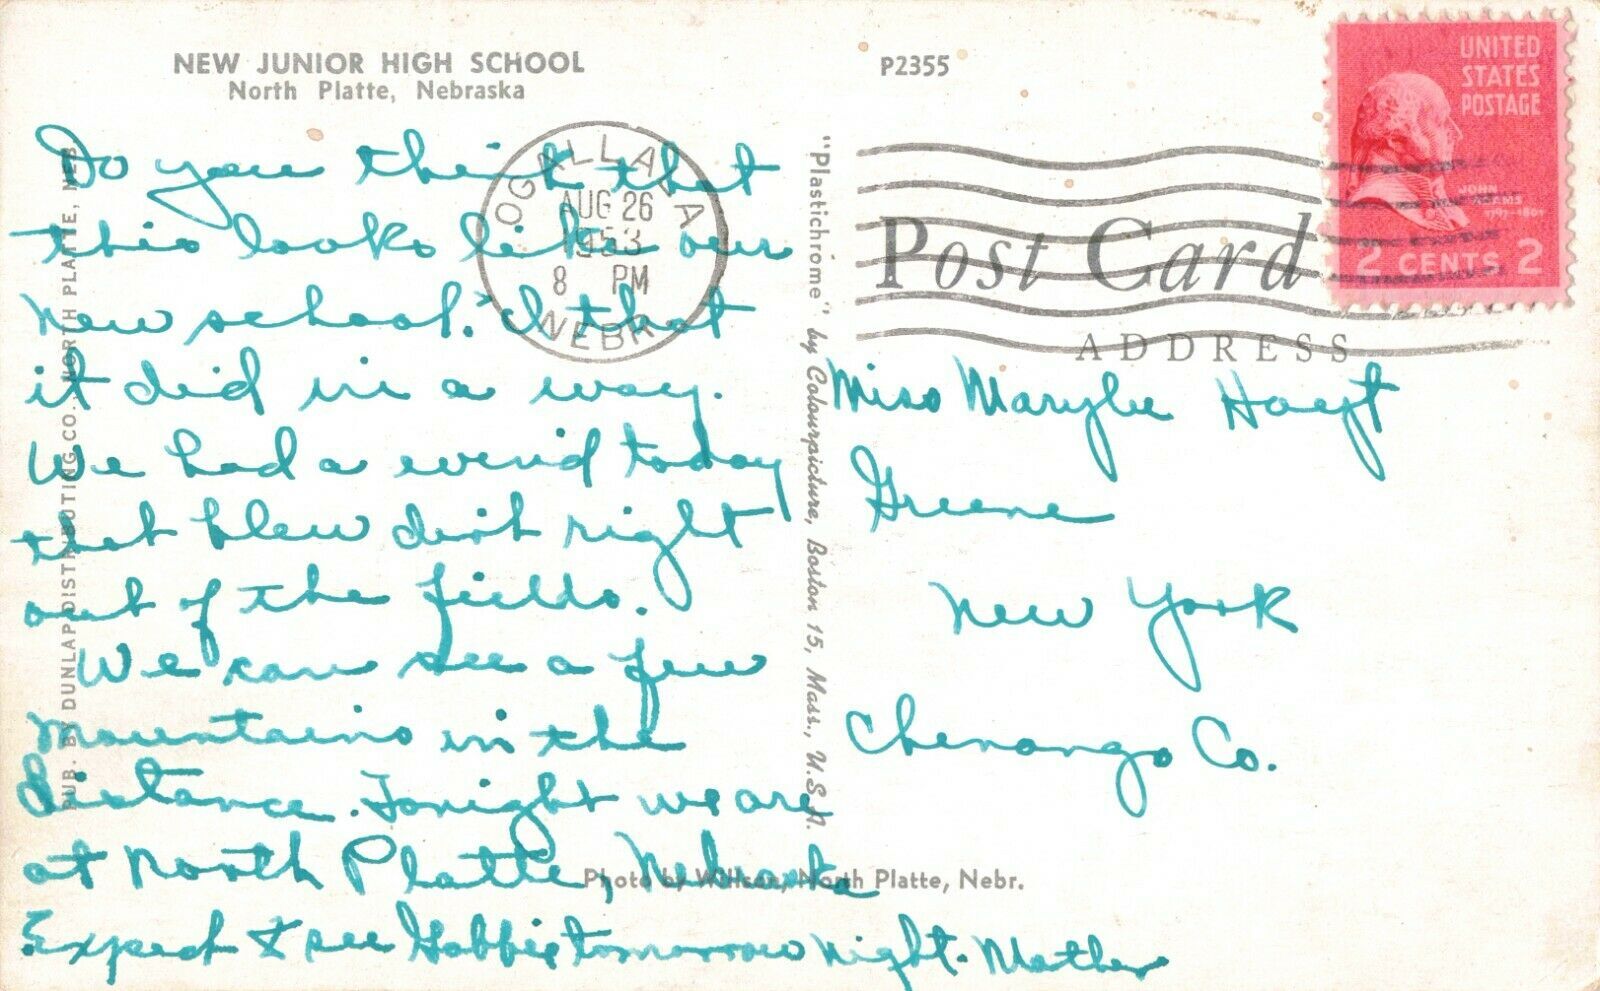 NEW JUNIOR HIGH SCHOOL
North Platte, Nebraska
Do you think that
this looks like our
new school. I that
it did in a way.
We had a wind today
that blew dirt right
out of the fields.
We can see a few
mountains in the
distance. Tonight we are
at North Platte, Nebraska
Expect to see tomorrow night. Mother
PUB. BY DUNLAP DISTRIBUTING CO., NORTH PLATTE, NEB.
"Plastichrome" by Colourpicture, Boston 15, Mass., U.S.A.
Photo by Willson, North Platte, Nebr.
P2355
OGALLALA
AUG 26
1953
8 PM
NEBR.
Post Card
ADDRESS
UNITED
STATES
POSTAGE
JOHN
ADAMS
1797-1801
2 CENTS 2
Miss Marybe Hoyt
Greene
New York
Chenango Co.